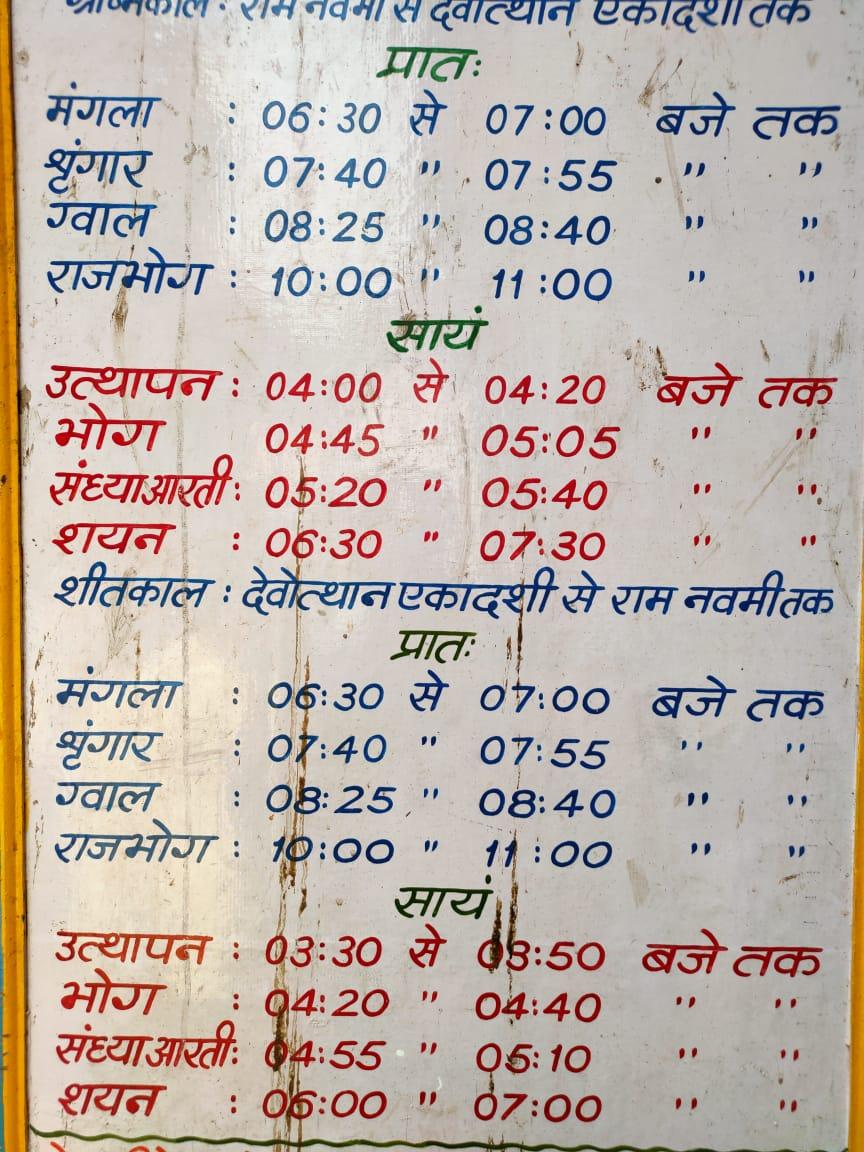 ग्रीष्मकाल : राम नवमी से देवोत्थान एकादशी तक
प्रातः
मंगला : 06:30 से 07:00 बजे तक
शृंगार : 07:40 " 07:55 " "
ग्वाल : 08:25 " 08:40 " "
राजभोग : 10:00 " 11:00 " "
सायं
उत्थापन : 04:00 से 04:20 बजे तक
भोग 04:45 " 05:05 " "
संध्या आरती : 05:20 " 05:40 " "
शयन : 06:30 " 07:30 " "
शीतकाल : देवोत्थान एकादशी से राम नवमी तक
प्रातः
मंगला : 06:30 से 07:00 बजे तक
शृंगार : 07:40 " 07:55 " "
ग्वाल : 08:25 " 08:40 " "
राजभोग : 10:00 " 11:00 " "
सायं
उत्थापन : 03:30 से 03:50 बजे तक
भोग : 04:20 " 04:40 " "
संध्या आरती : 04:55 " 05:10 " "
शयन : 06:00 " 07:00 " "